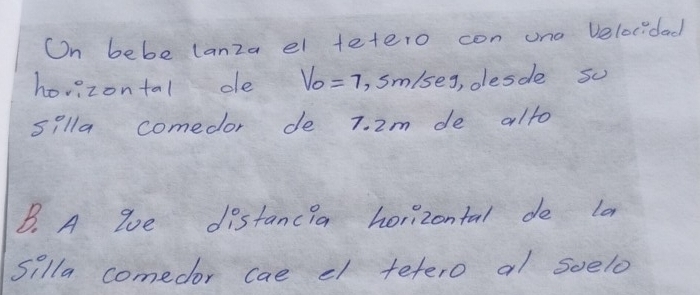 Un bebe lanza el tetero con una Velocidad
horizontal de Vo=1,5m/seg, desde su
silla comedor de 1.2m de alto
B. A que distancia horizontal de la
Silla comedor cae el tetero al suelo